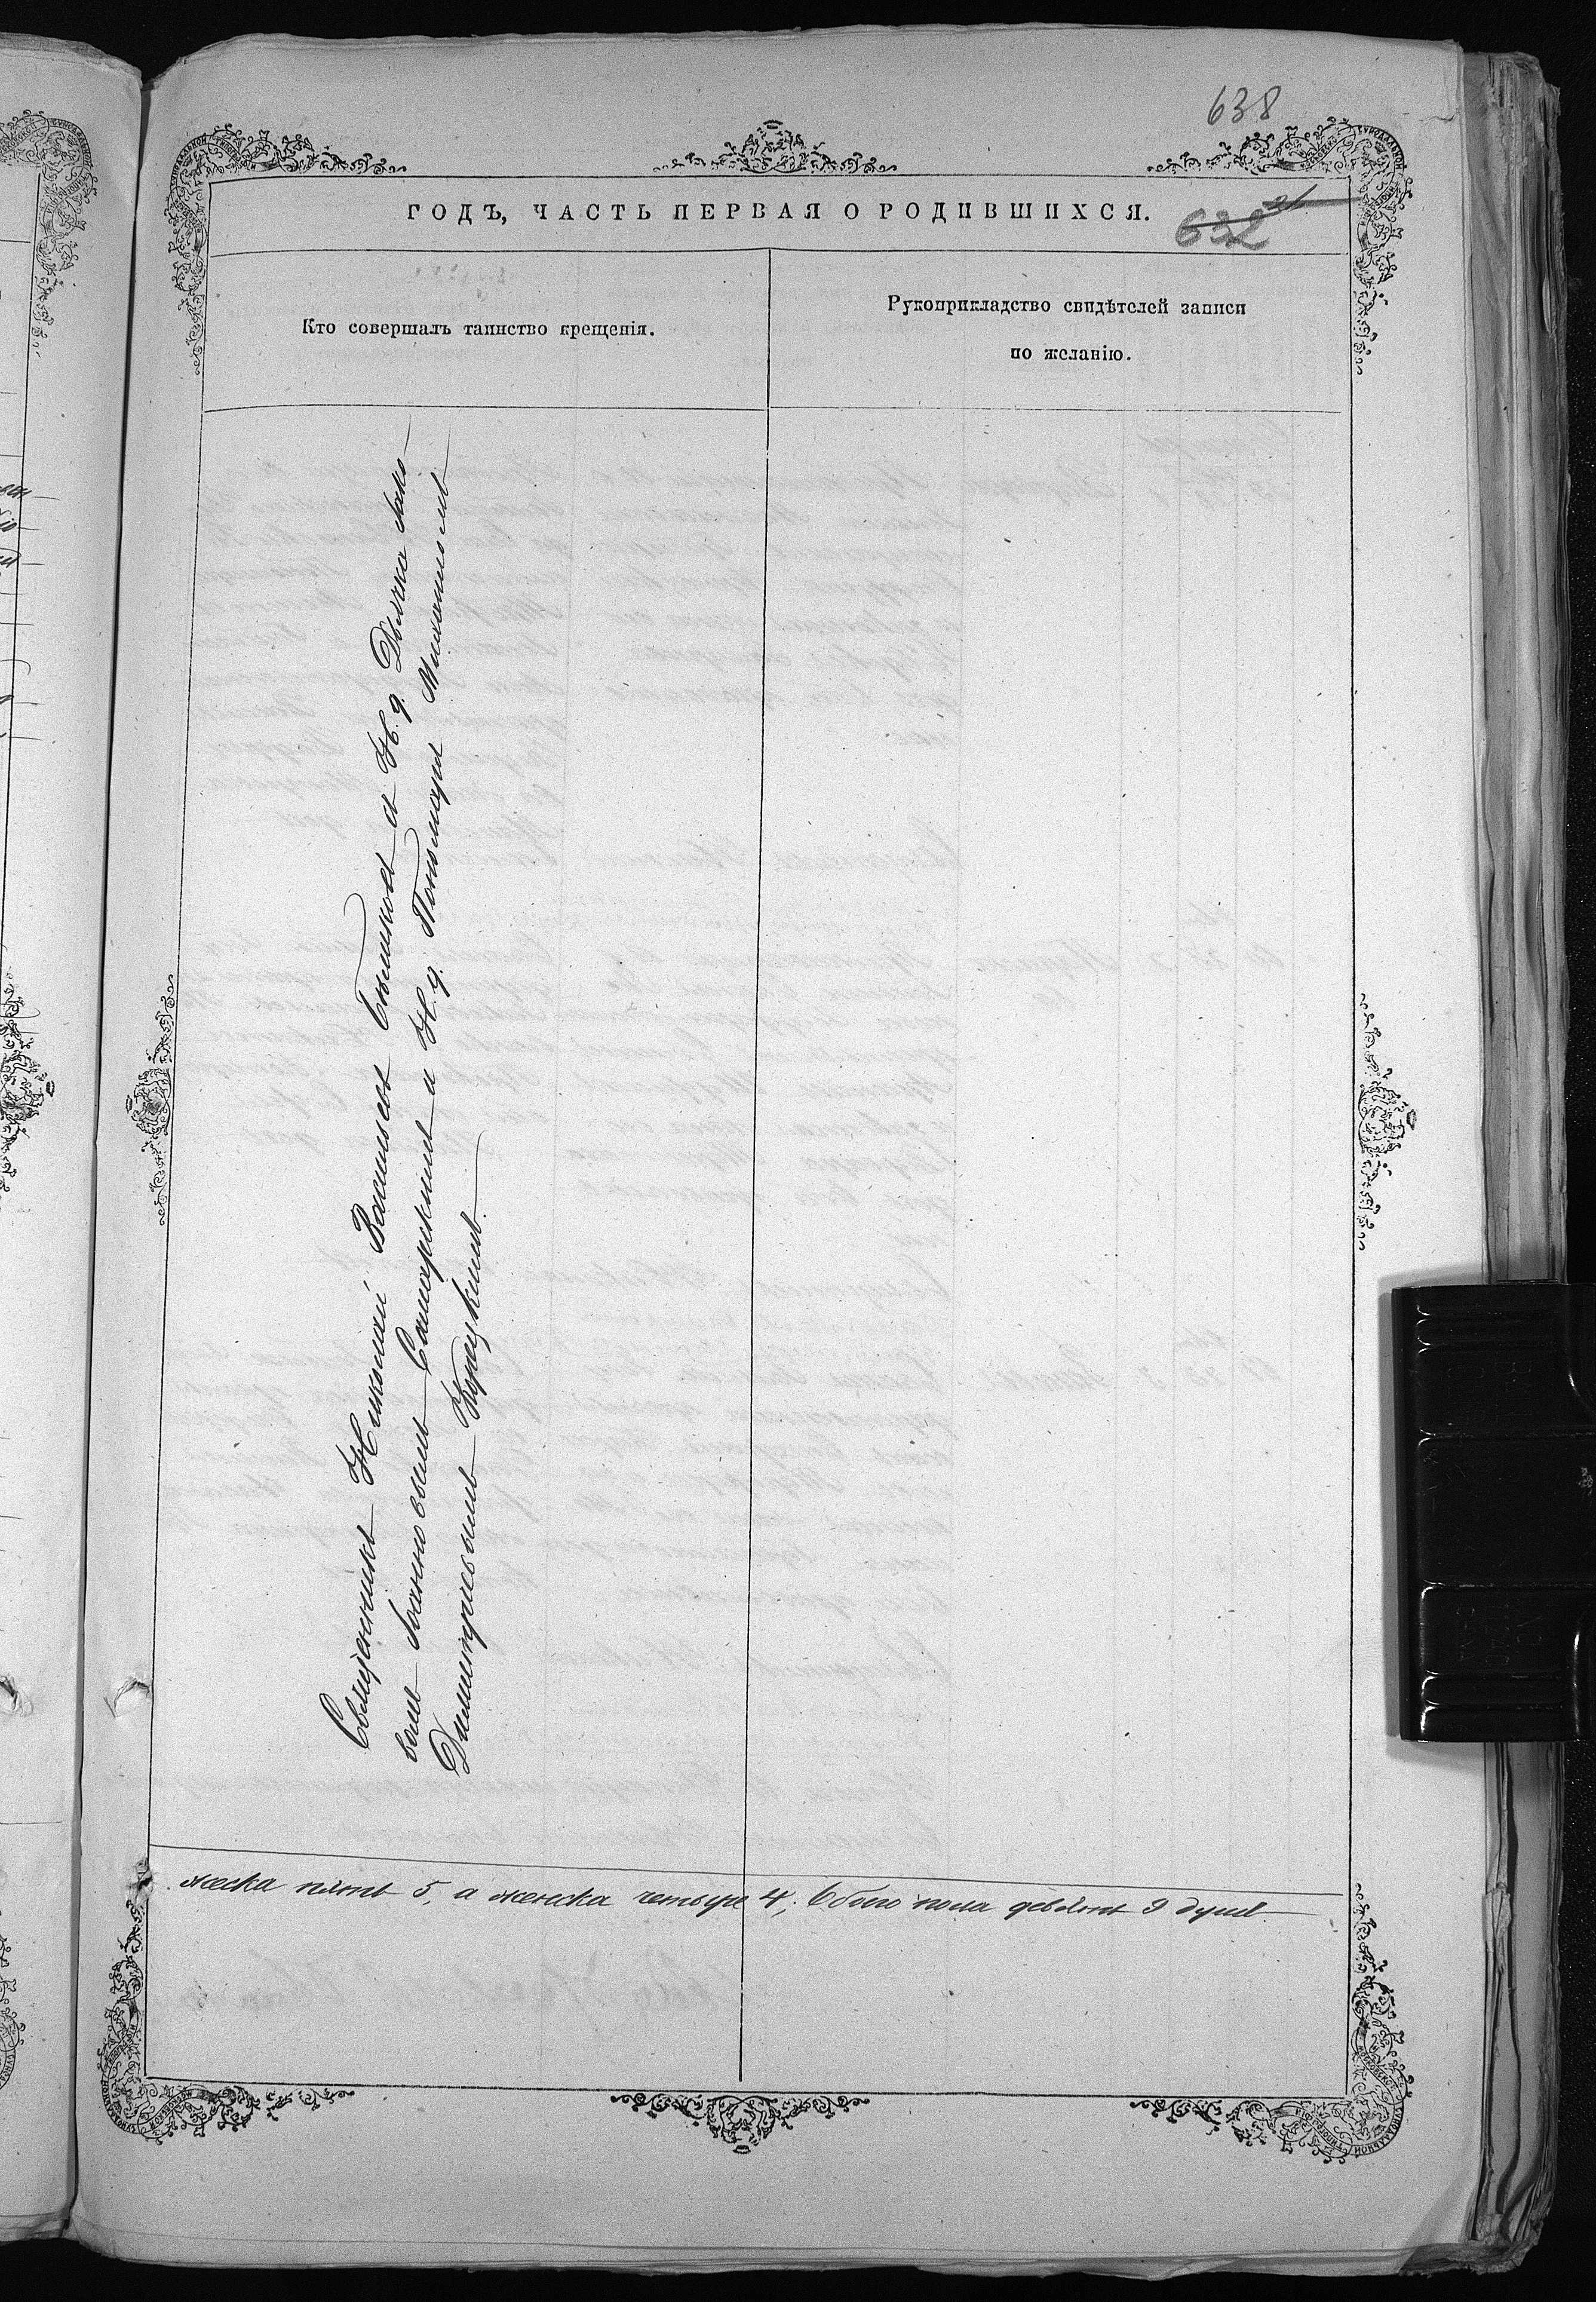 638
ГОДЪ, ЧАСТЬ ПЕРВАЯ О РОДИВШИХСЯ.
632
Кто совершалъ таинство крещенія.
Рукоприкладство свидѣтелей записи
по желанію.
Священникъ Николай Васильевъ съ И. д. Дьячка Іако
вымъ Іоанновымъ Самарскимъ и И. д. Пономаря Михаиломъ
Димитріевымъ Корецкимъ.
жеска пять 5, а женска четыре 4, Обоего пола девять 9 душъ.